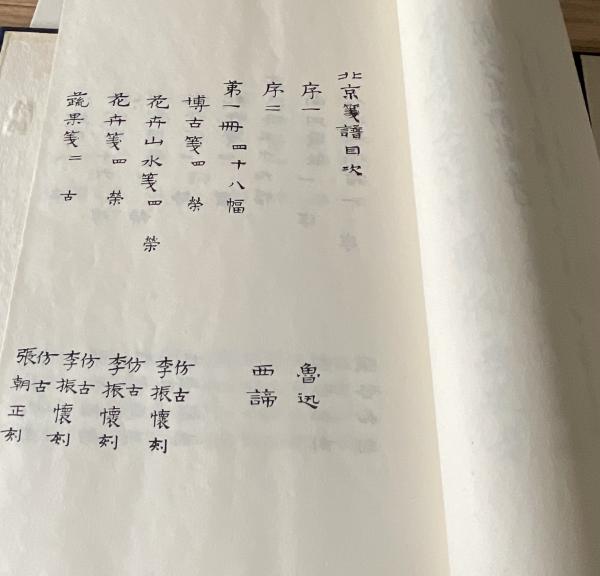 北京箋譜目次
序一 魯迅
序二 西諦
第一冊四十八幅
博古箋四 榮 仿古 李振懷刻
花卉山水箋四 榮 仿古 李振懷刻
花卉箋四 榮 仿古 李振懷刻
蔬果箋二 古 仿古 張朝正刻